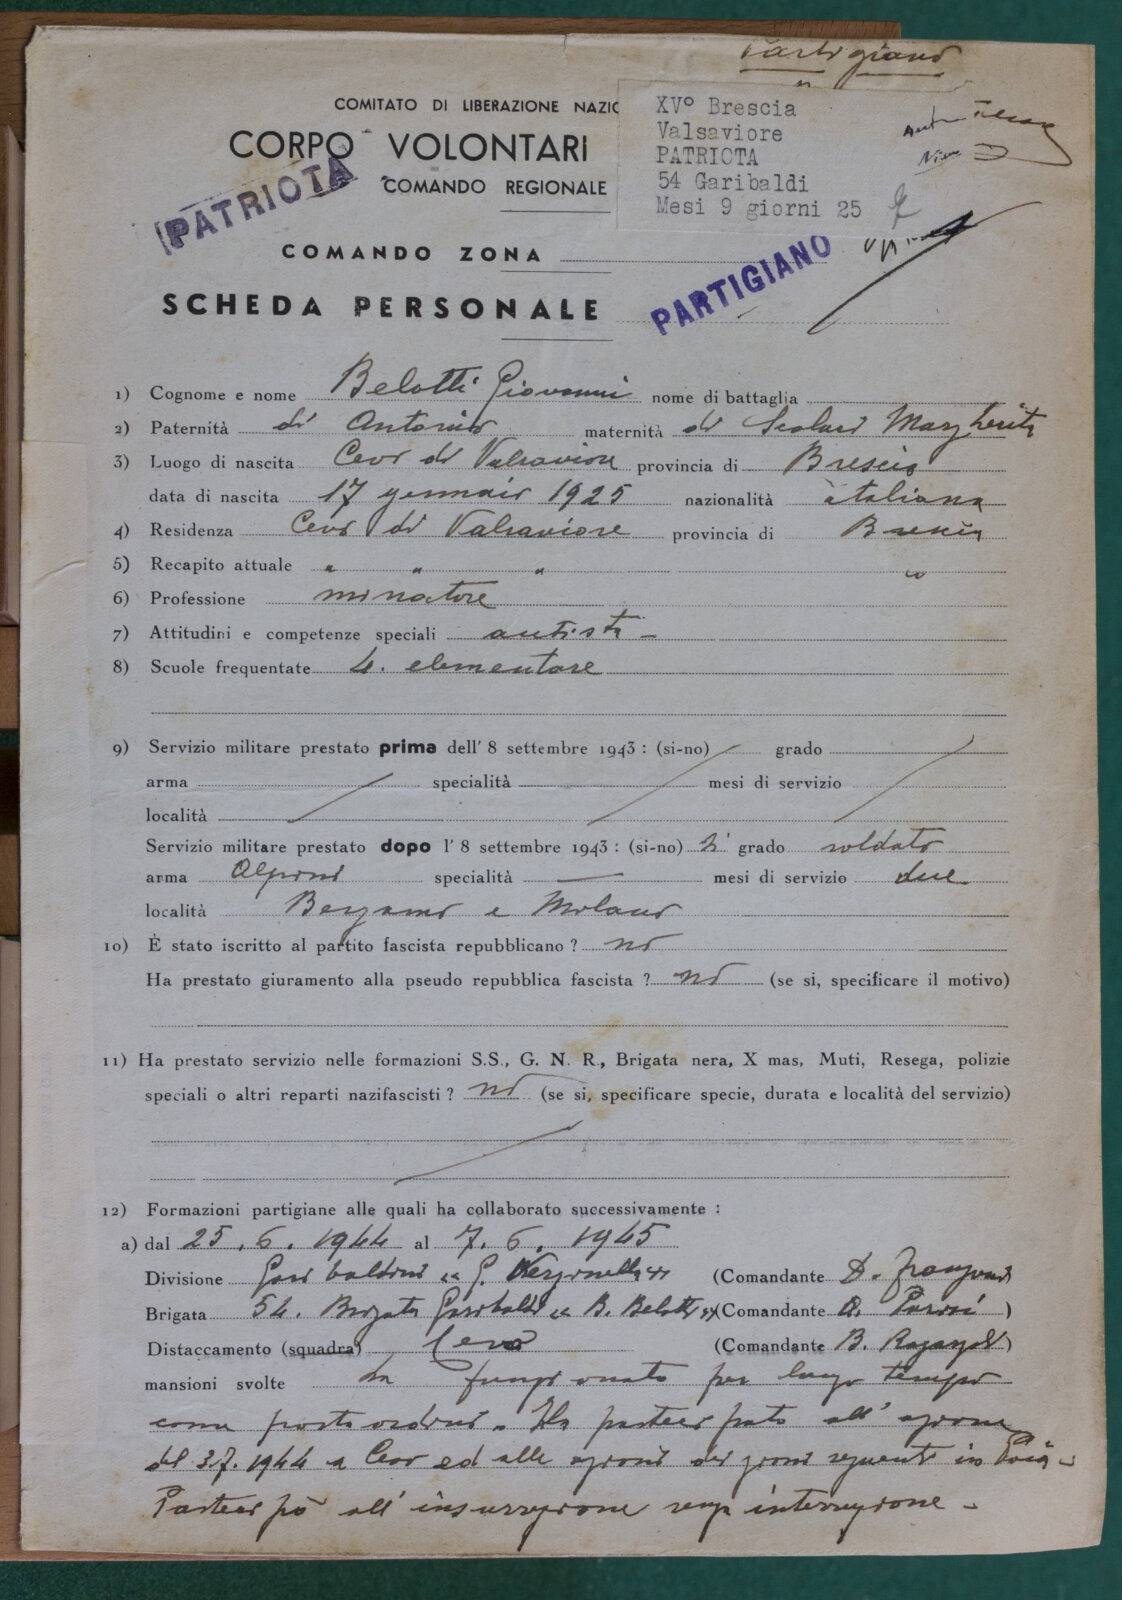 Partigiano
COMITATO DI LIBERAZIONE NAZIO
CORPO VOLONTARI
COMANDO REGIONALE
XV° Brescia
Valsaviore
PATRIOTA
54 Garibaldi
Mesi 9 giorni 25
PATRIOTA
PARTIGIANO
COMANDO ZONA
SCHEDA PERSONALE
1) Cognome e nome Belotti Giovanni nome di battaglia
2) Paternità di Antonio maternità di Scolari Margherita
3) Luogo di nascita Cevo di Valsaviore provincia di Brescia
data di nascita 17 gennaio 1925 nazionalità italiana
4) Residenza Cevo di Valsaviore provincia di Brescia
5) Recapito attuale " " "
6) Professione minatore
7) Attitudini e competenze speciali autista -
8) Scuole frequentate 4. elementare
9) Servizio militare prestato prima dell' 8 settembre 1943 : (si-no) grado
arma specialità mesi di servizio
località
Servizio militare prestato dopo l' 8 settembre 1943 : (si-no) si grado soldato
arma Alpini specialità — mesi di servizio due
località Bergamo e Milano
10) È stato iscritto al partito fascista repubblicano ? no
Ha prestato giuramento alla pseudo repubblica fascista ? no (se sì, specificare il motivo)
11) Ha prestato servizio nelle formazioni S.S., G. N. R., Brigata nera, X mas, Muti, Resega, polizie
speciali o altri reparti nazifascisti ? no (se sì, specificare specie, durata e località del servizio)
12) Formazioni partigiane alle quali ha collaborato successivamente :
a) dal 25.6.1944 al 7.6.1945
Divisione Garibaldini "G. Verginella" (Comandante D.
Brigata 54. Brigata Garibaldi "B. Belotti" (Comandante A. Parisi )
Distaccamento (squadra) Cevo (Comandante B. )
mansioni svolte Ha funzionato per lungo tempo
come porta ordini. Ha partecipato all' azione
del 3.7.1944 a Cevo ed alle azioni dei giorni seguenti in
Partecipò all' insurrezione senza interruzione -